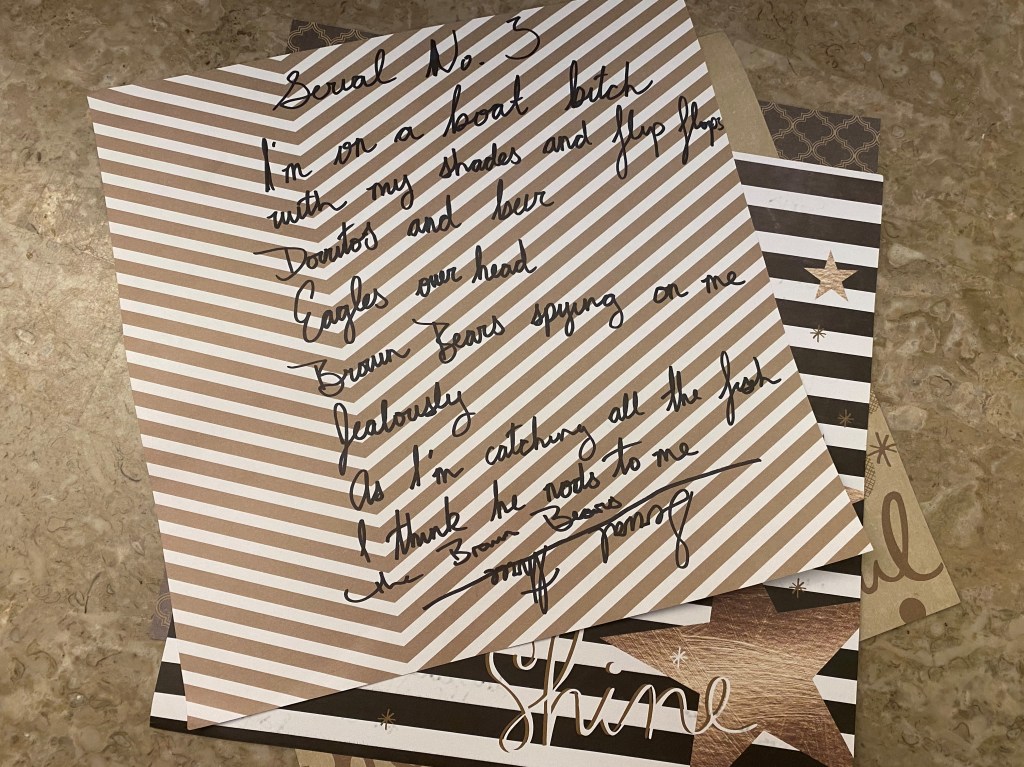 Serial No. 3
I'm on a boat bitch
with my shades and flip flops
Dorritos and beer
Eagles over head
Brown Bears spying on me
Jealously
As I'm catching all the fish
I think he nods to me
the Brown Bears
Shine
ul